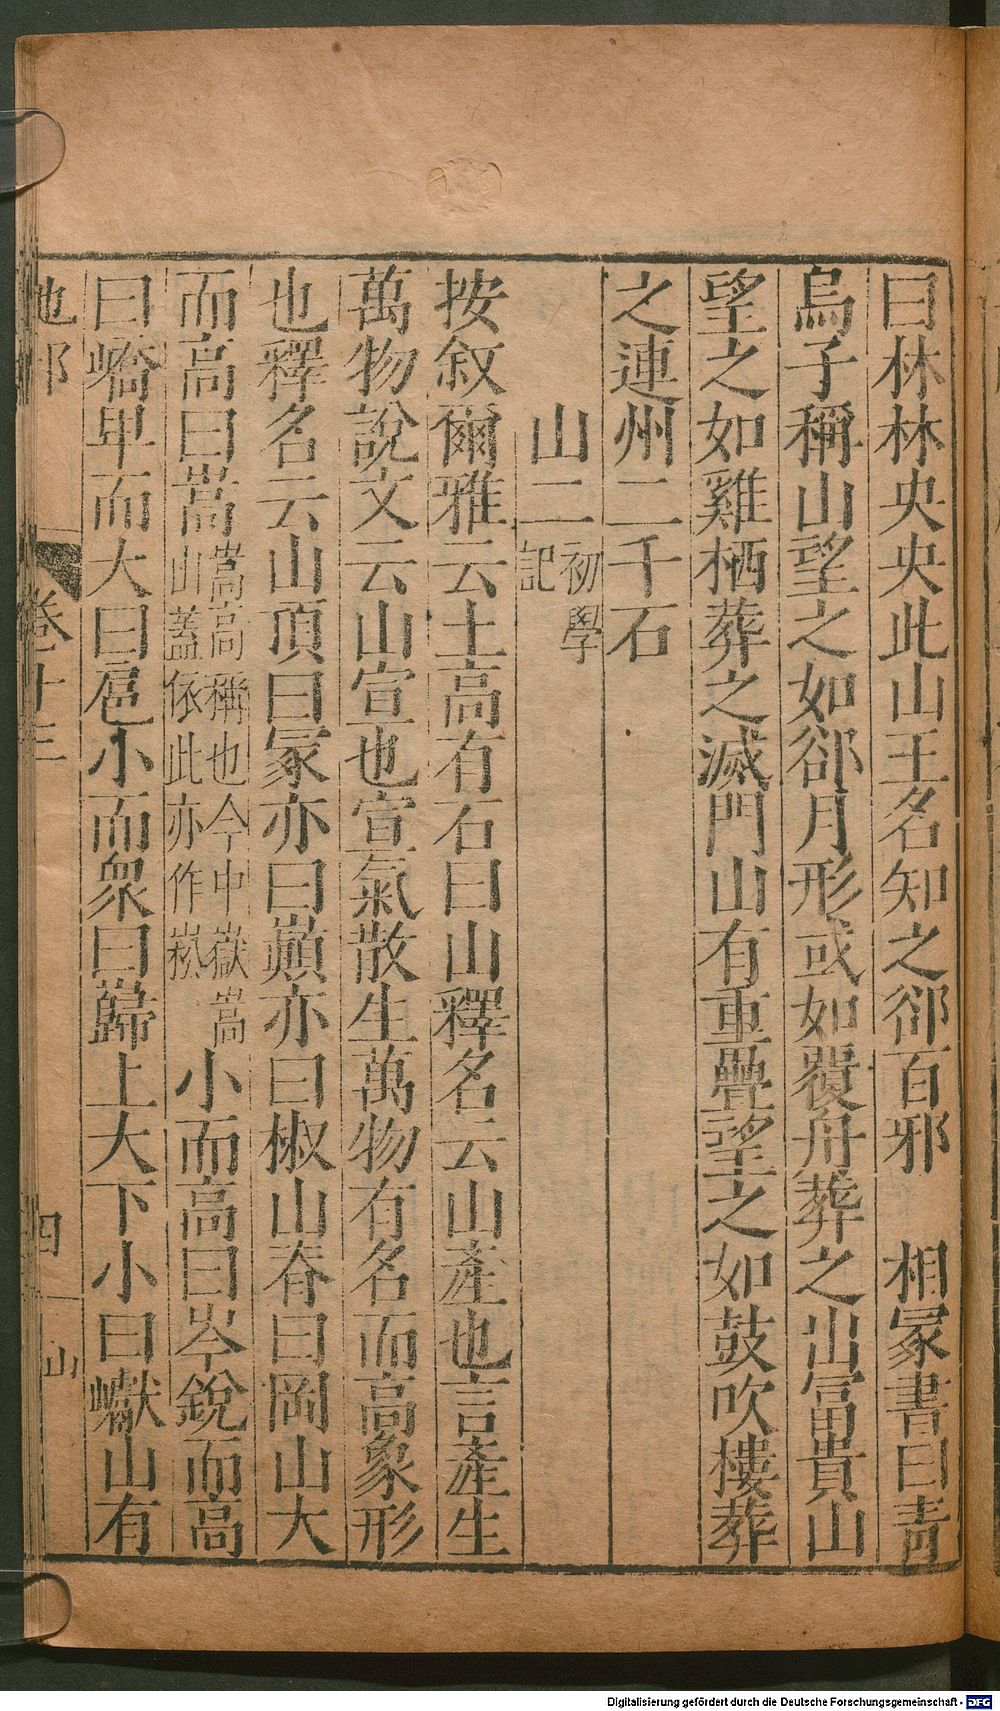 曰林林央央此山王名知之郤百邪　相冢書曰青
烏子稱山望之如郤月形或如覆舟葬之出富貴山
望之如雞栖葬之滅門山有重疊望之如鼓吹樓葬
之連州二千石
山二初學記
按叙爾雅云土高有石曰山釋名云山產也言產生
萬物說文云山宣也宣氣散生萬物有名而高象形
也釋名云山頂曰冢亦曰巔亦曰椒山脊曰岡山大
而高曰嵩嵩高稱也今中嶽嵩山蓋依此亦作崧小而高曰岑銳而高
曰嶠卑而大曰扈小而衆曰巋上大下小曰巘山有
地部
卷十三
四
山
Digitalisierung gefördert durch die Deutsche Forschungsgemeinschaft - DFG